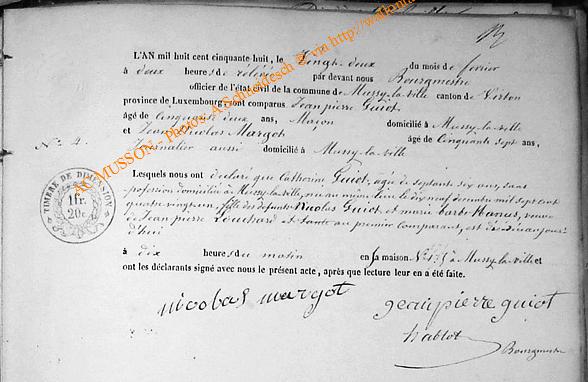 L'AN mil huit cent cinquante-huit, le Vingt-deux du mois de février
à deux heures de relevée par devant nous Bourgmestre
officier de l'état civil de la commune de Mussy-la-ville canton de Virton
province de Luxembourg sont comparus Jean pierre Guiot
âgé de Cinquante deux ans, Maçon domicilié à Mussy-la-ville
et Jean Nicolas Margot âgé de Cinquante sept ans,
Journalier aussi domicilié à Mussy-la-ville
N° 4.
Lesquels nous ont déclaré que Catherine Guiot, agée de septante six ans, sans
profession domiciliée à Mussy-la-ville, née au même lieu le dix neuf decembre mil sept cent
quatre vingt un, fille des defunts Nicolas Guiot et marie barbe Hanus, veuve
de Jean pierre Louchard et tante au premier comparant, est décédée aujour
d'hui
à dix heures du matin en sa maison N° 175 à Mussy-la-ville et
ont les déclarants signé avec nous le présent acte, après que lecture leur en a été faite.
nicolas margot
jean pierre guiot
hablot
Bourgmestre
TIMBRE DE DIMENSION
1fr.
20c.
AC MUSSON - Photos A.Schleidesch © via http://